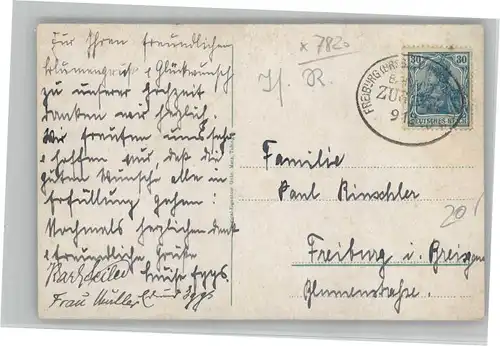 Für Ihren freundlichen
Blumengruß & Glückwunsch
zu unserer Hochzeit
danken wir herzlich.
Wir freuten uns sehr
& hoffen nur, daß die
guten Wünsche alle in
Erfüllung gehen!
Nochmals herzlichen dank
& freundliche Grüße
Luise Epps.
Frau Müller
*782
Jf. R.
FREIBURG (BRSG
ZUG
30 30
DEUTSCHES REICH
Familie
Paul Rinschler
20
Freiburg i. Breisgau
Blumenstraße.